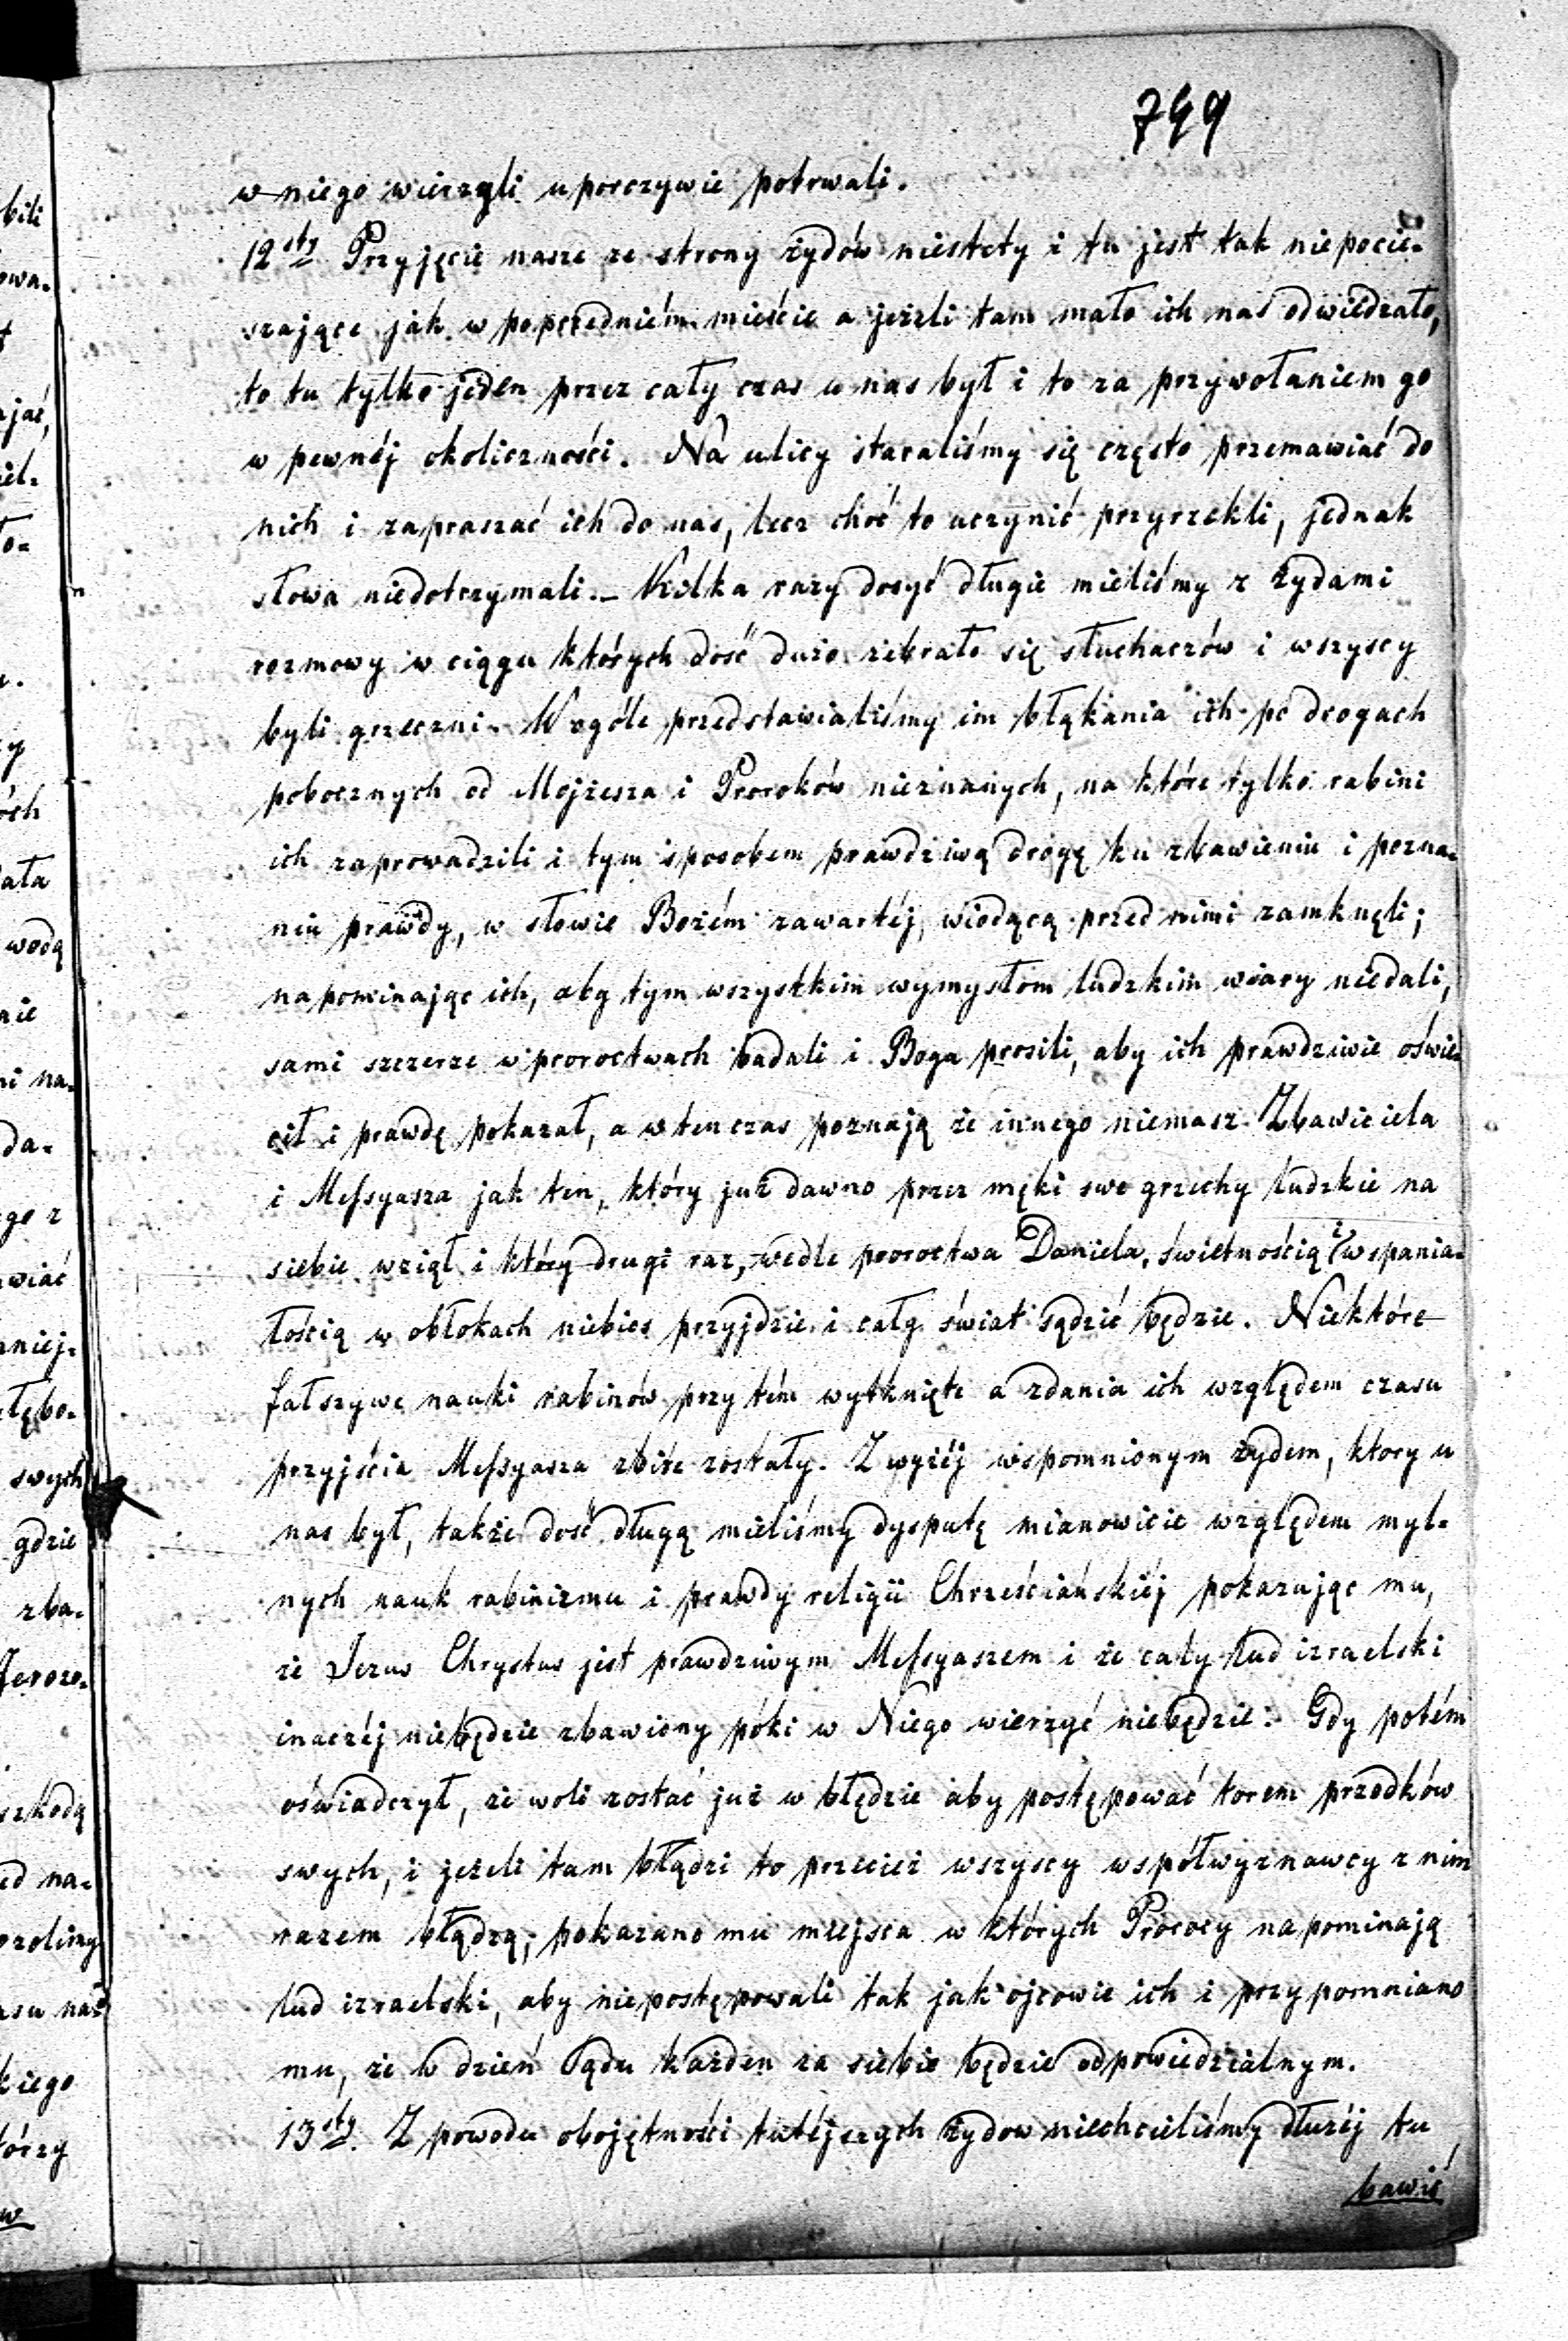 799
w niego wierzyli uporczywie potrwali.
12sty Przyjęcie nasze ze strony żydów niestety i tu jest tak niepocie-
szające jak w poprzedniém mieście a jeżeli tam mało ich nas odwiedzało,
to tu tylko jeden przez cały czas u nas był i to za przywołaniem go
w pewnéj okoliczności. Na ulicy staraliśmy się często przemawiać do
nich i zapraszać ich do nas, lecz choć to uczynić przyrzekli, jednak
słowa niedotrzymali._ Kilka razy dosyć długie mieliśmy z żydami
rozmowy w ciągu których dość dużo zebrało się słuchaczów i wszyscy
byli grzeczni. W ogóle przedstawialiśmy im błąkania ich po drogach
pobocznych od Mojżesza i Proroków nieznanych, na które tylko rabini
ich zaprowadzili i tym sposobem prawdziwą drogę ku zbawieniu i pozna-
niu prawdy, w słowie Bożém zawartéj, wiodącą przed nimi zamknęli;
napominając ich, aby tym wszystkim wymysłom ludzkim wiary niedali,
sami szczerze w proroctwach badali i Boga prosili, aby ich prawdziwie oświe-
cił i prawdę pokazał, a wtenczas poznają że innego niemasz Zbawiciela
i Messyasza jak ten, który już dawno przez męki swe grzechy ludzkie na
siebie wziął i który drugi raz, wedle proroctwa Daniela, świetnością i wspania-
łością w obłokach niebios przyjdzie i cały świat sądzić będzie. Niektóre
fałszywe nauki rabinów przytém wytknięte a zdania ich względem czasu
przyjścia Messyasza zbite zostały. Z wyżéj wspomnionym żydem, ktory u
nas był, także dość długą mieliśmy dysputę mianowicie względem myl-
nych nauk rabinizmu i prawdy religii Chrześciańskiéj pokazując mu,
że Jezus Chrystus jest prawdziwym Messyaszem i że cały lud izraelski
inaczéj niebędzie zbawiony póki w Niego wierzyć niebędzie. Gdy potém
oświadczył, że woli zostać już w błędzie aby postępować torem przodków
swych, i jeżeli tam błądzi to przecież wszyscy współwyznawcy z nim
razem błądzą; pokazano mu miejsca w których Prorocy napominają
lud izraelski, aby niepostępowali tak jak ojcowie ich i przypomniano
mu, że w dzień Sądu każden za siebie będzie odpowiedzialnym.
13sty. Z powodu obojętności tutéjszych żydow niechcieliśmy dłużéj tu
bawić